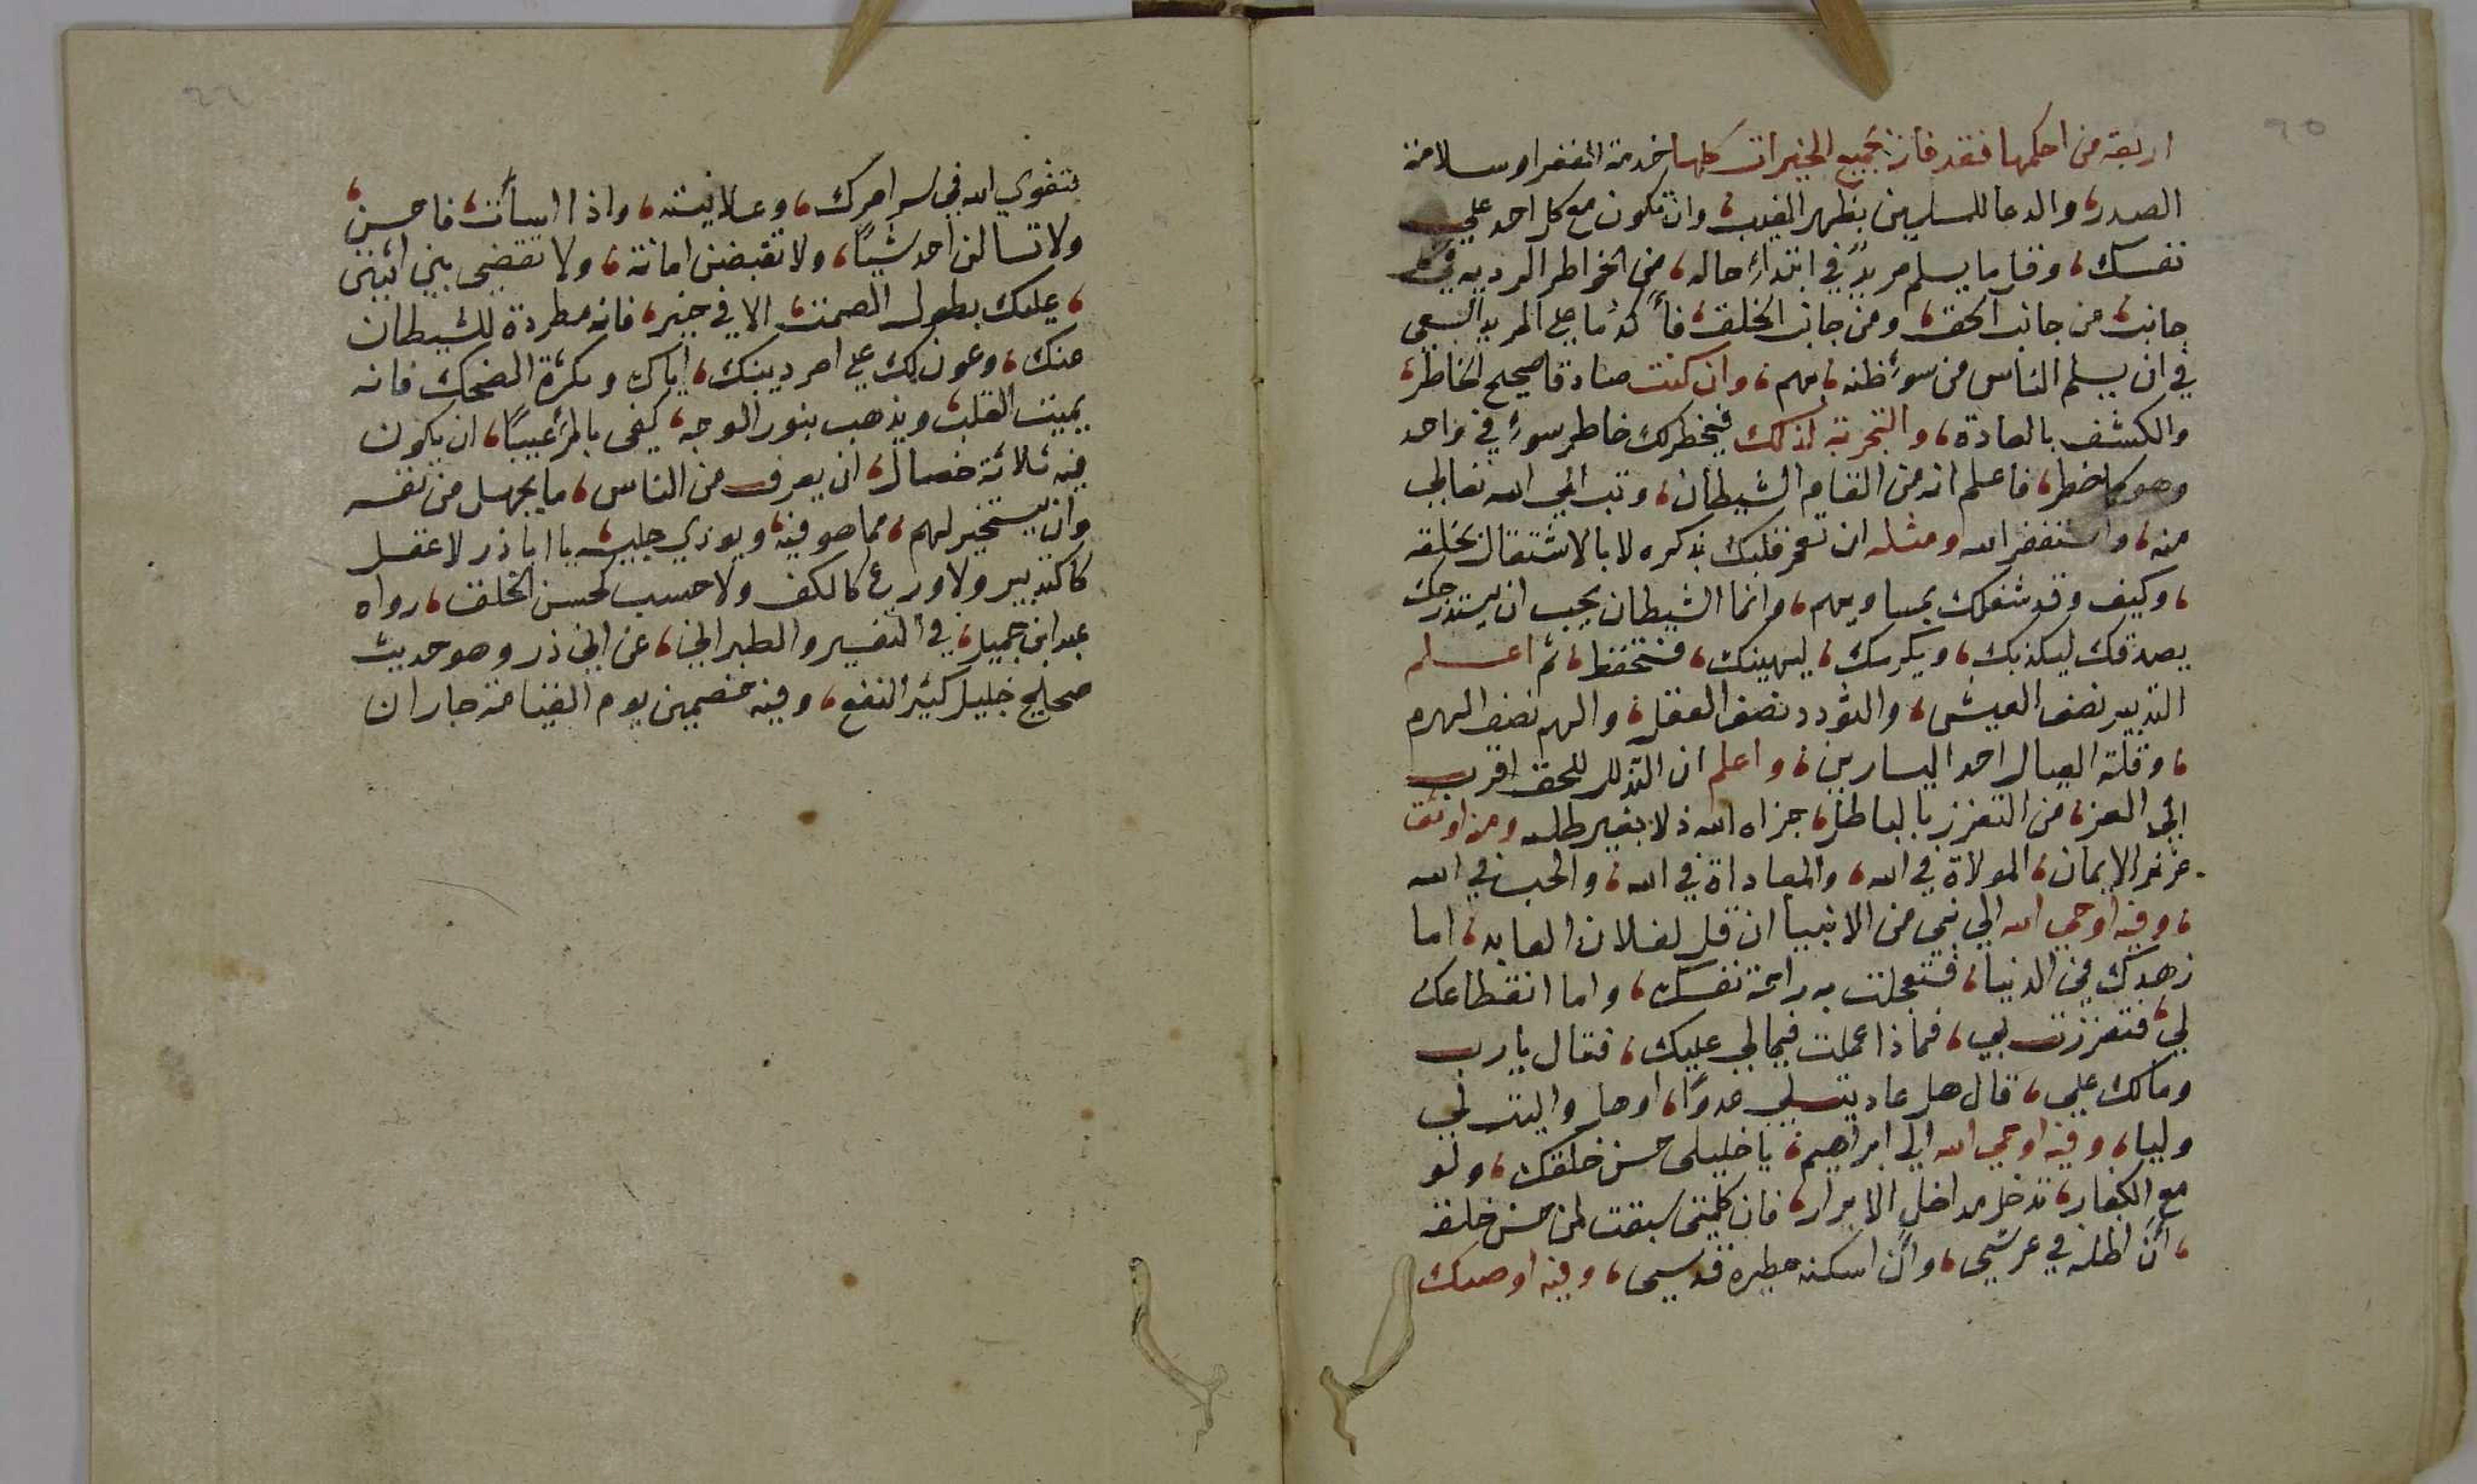 ٢٥
اربعة من احكمها فقد فاز بجميع الخيرات كلها خدمة الفقرا وسلامة
الصدر، والدعا للمسلمين بظهر الغيب، وان تكون مع كل احد علي
نفسك، وقل ما يسلم مريد في ابتداء حاله، من الخواطر الرديه في كل
جانب، من جانب الحق، ومن جانب الخلق، فأكد ما على المريد السعي
في ان يسلم الناس من سوء ظنه، بهم، وان كنت صادقا صحيح الخاطر،
والكشف بالعادة، والتجربة لذلك فيخطر لك خاطر سوء في واحد
وهو كما خطر، فاعلم انه من القاء الشيطان، وتب الي الله تعالي
منه، واستغفر الله ومثله ان تعمر قلبك بذكره لا بالاشتغال بخلقه
، وكيف وقد شغلك بمساويهم، وانما الشيطان يحب ان يستدرجك
يصدقك ليكذبك، ويكرمك، ليهينك، فتحفظ، ثم اعلم
التدبير نصف العيش، والتودد نصف العقل، والهم نصف الهرم
، وقلة العيال احد اليسارين، واعلم ان التذلل للحق اقرب
الي العز، من التعزز بالباطل، جزاه الله ذلا بغير ظلم ومن اوثق
عرى الايمان، المولاة في الله، والمعاداة في الله، والحب في الله
، وفيه اوحي الله الي نبي من الانبيا ان قل لفلان العابد، اما
زهدك في الدنيا، فتعجلت به راحة نفسك، واما انقطاعك
لي، فتعززت بي، فماذا عملت فيما لي عليك، فقال يا رب
وما لك علي، قال هل عاديت لي عدوًا، او هل واليت لي
وليا، وفيه اوحي الله الي ابراهيم، يا خليلي حسن خلقك، ولو
مع الكفار، تدخل مداخل الابرار، فان كلمتي سبقت لمن حسن خلقه
، أن اظله في عرشي، وأن اسكنه حظيره قدسي، وفيه اوصيك
٢٦
بتقوي الله في سر امرك، وعلانيته، واذا اسأت، فاحسن،
ولا تسالن احد شيًا، ولا تقبضن امانة، ولا تقضي بين اثنين
، عليك بطول الصمت، الا في خير، فانه مطردة للشيطان
عنك، وعون لك على امر دينك، اياك وكثرة الضحك فانه
يميت القلب، ويذهب بنور الوجه، كفى بالمرء عيبًا، ان يكون
فيه ثلاثة خصال، ان يعرف من الناس، ما يجهل من نفسه
وان يستخير لهم، مما هو فيه، ويوذي جليسه، يا ابا ذر لا عقل
كالتدبير ولا ورع كالكف ولا حسب كحسن الخلق، رواه
عبد ابن حميد، في التفسير والطبراني، عن ابي ذر وهو حديث
صحليح خليل كثير النفع، وفيه خصمين يوم القيامة جاران